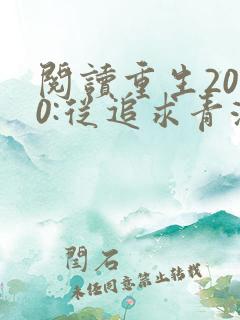 閱讀重生20
0:從追求青
閆石
未經同意禁止轉載